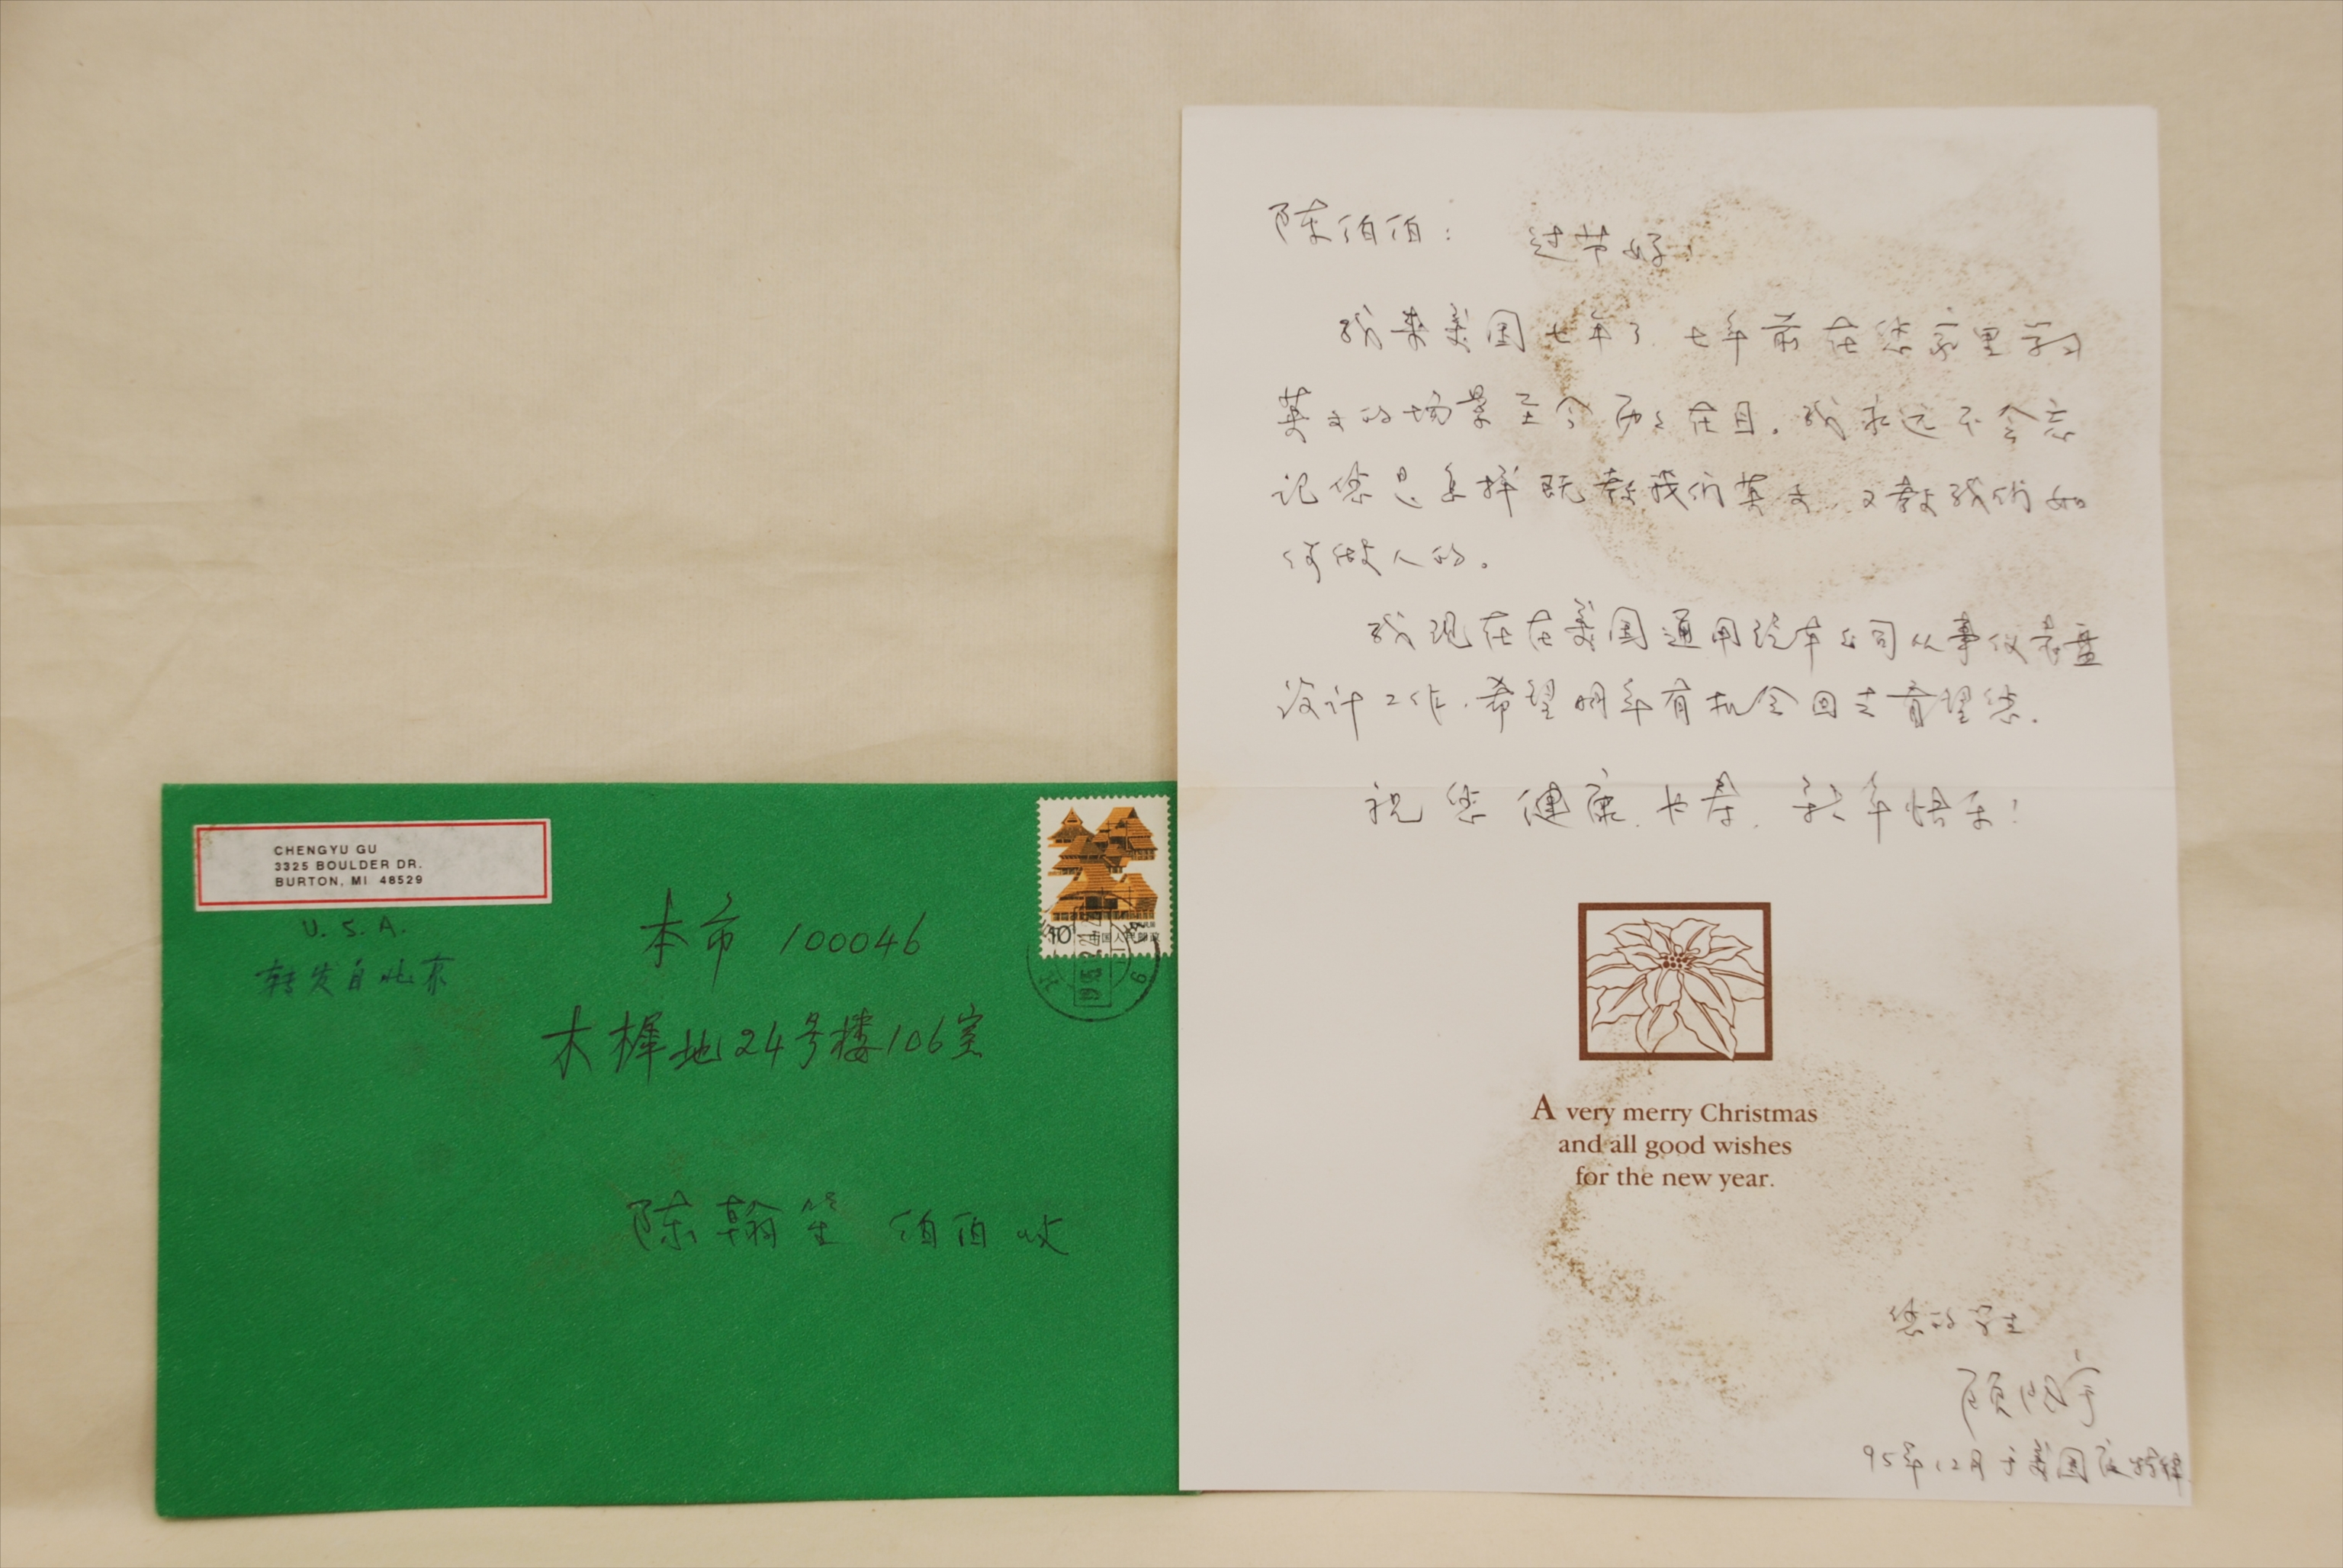 CHENGYU GU
3325 BOULDER DR.
BURTON, MI 48529
U. S. A.
转发自北京
10
中国人民邮政
本市 100046
木樨地24号楼106室
陈翰笙 伯伯 收
陈伯伯: 过节好!
我来美国七年了,七年前在您家里学习
英文的场景至今历历在目。我永远不会忘
记您是怎样既教我们英文,又教我们如
何做人的。
我现在在美国通用汽车公司从事仪表盘
设计工作,希望明年有机会回去看望您。
祝您健康、长寿,新年快乐!
A very merry Christmas
and all good wishes
for the new year.
您的学生
顾
95年12月于美国底特律